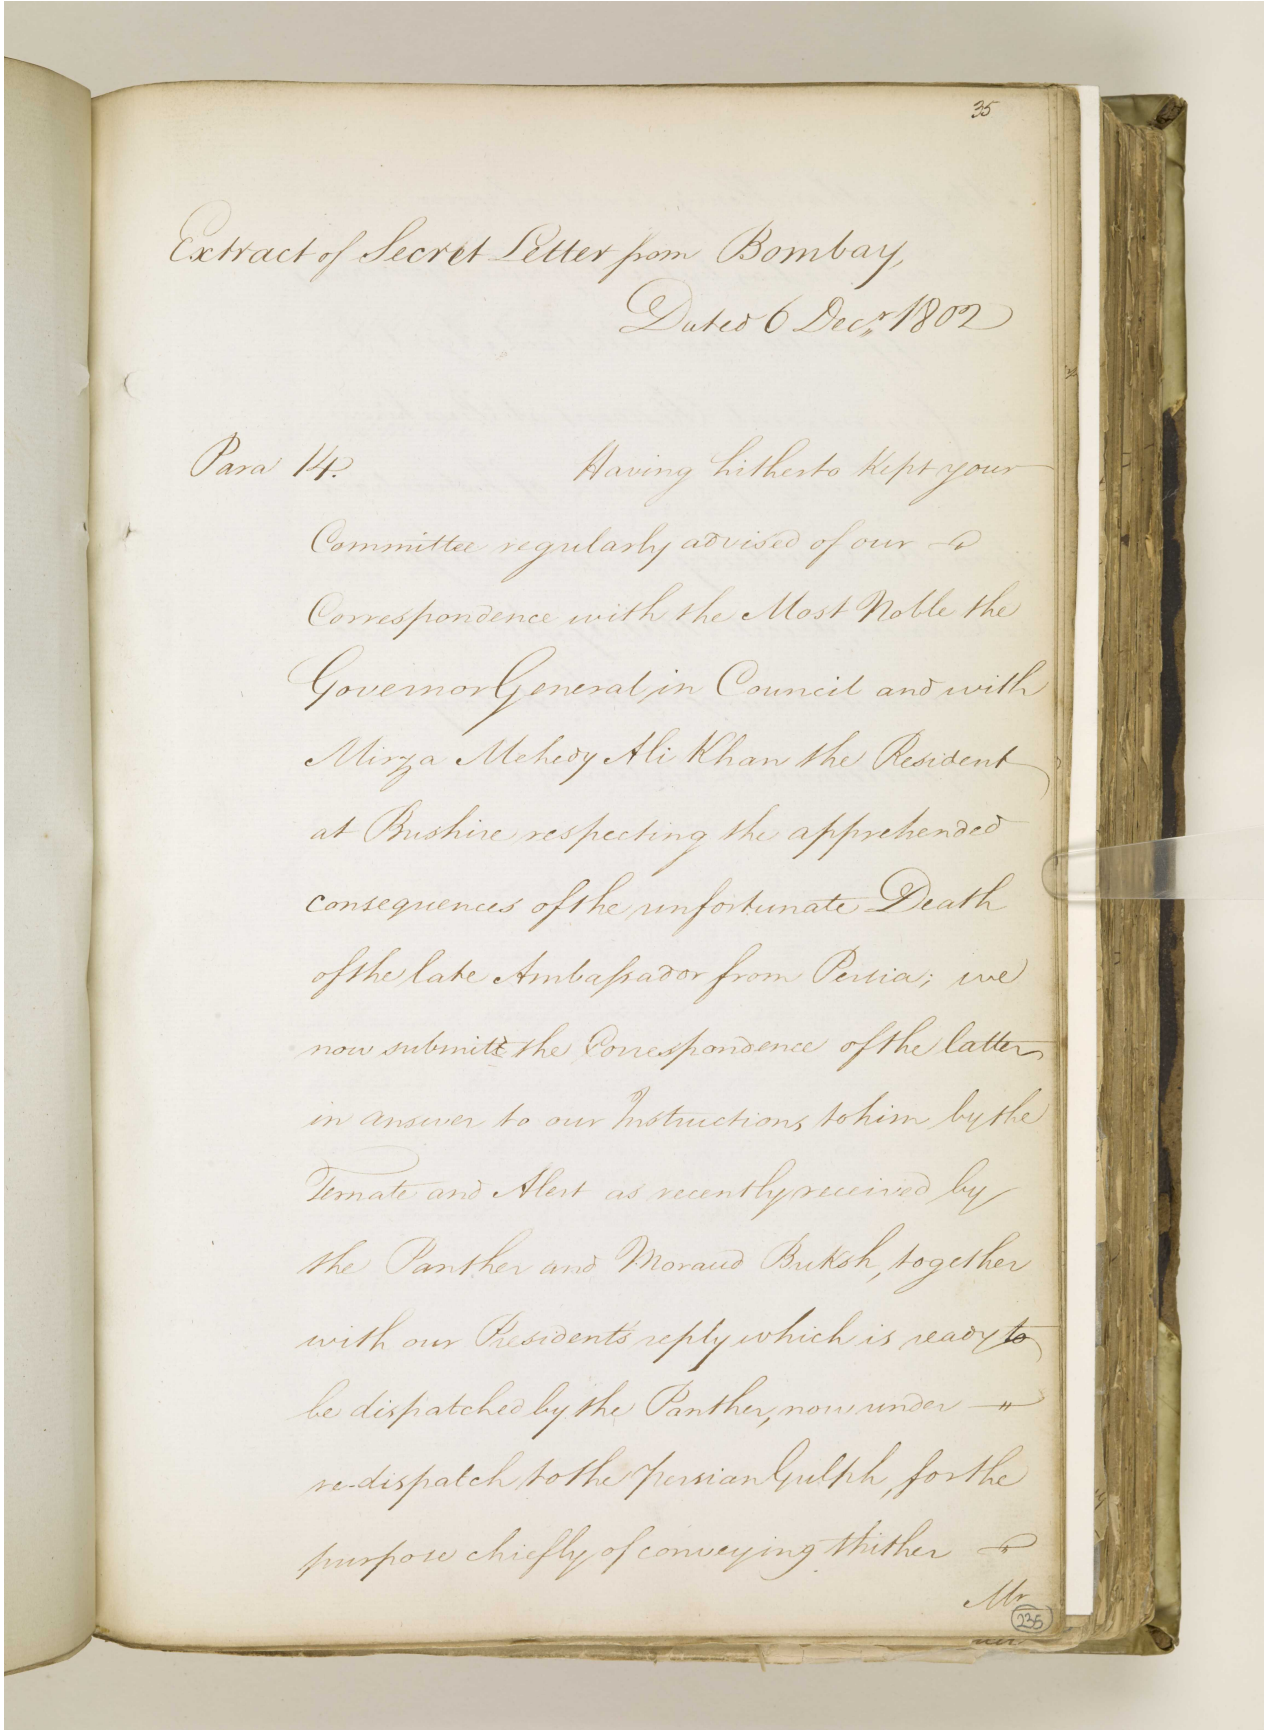 35
Extract of Secret Letter from Bombay,
Dated 6 Decr. 1802
Para 14.
Having hitherto kept your
Committee regularly advised of our
Correspondence with the Most Noble the
Governor General in Council and with
Mirza Mehedy Ali Khan the Resident
at Bushire respecting the apprehended
consequences of the unfortunate Death
of the late Ambassador from Persia; we
now submit the Correspondence of the latter
in answer to our Instructions to him by the
Ternate and Alert as recently received by
the Panther and Moraud Buksh, together
with our President's reply which is ready to
be dispatched by the Panther, now under
re-dispatch to the Persian Gulph, for the
purpose chiefly of conveying thither
Mr
235